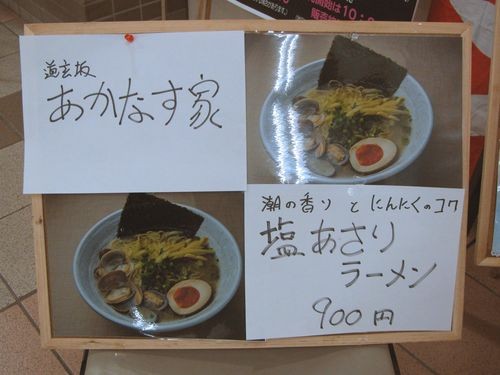 開始は10:
販売
道玄坂
あかなす家
潮の香りとにんにくのコク
塩あさり
ラーメン
900円